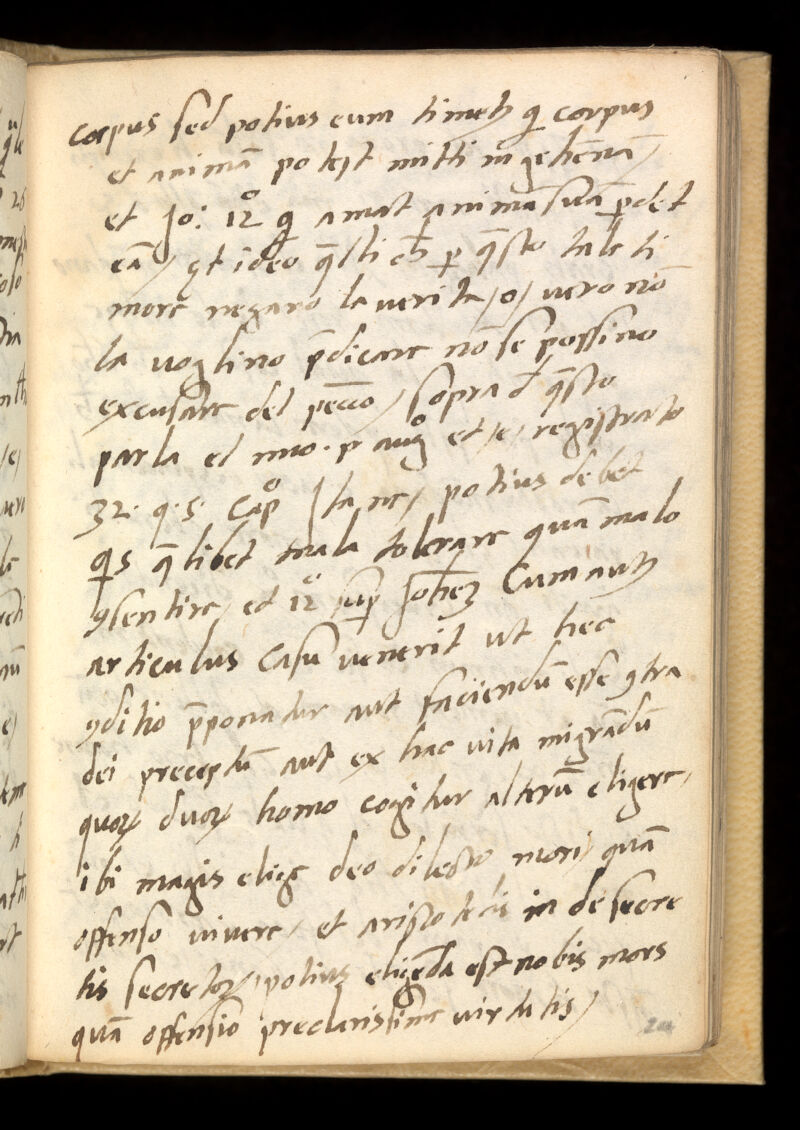 corpus sed potius eum timetꝫ q̄ corpus
et animā potest mitti in gehenā /
et Jo: 12° q̄ amat animā suā ꝑdet
eā / ꝯt ideo q̄lli ch̄ ꝑ q̄sto tale ti
more negano la verita / o / vero nō
la voglino p̄dicare nō se possino
excusare del pecc̄o / sopra d̄ q̄sto
parla el mio . p augº et / e / registrato
32. q. 5. Capº Ita ne / potius debet
q̄s q̄libet mala tolerare quā malo
ꝯsentire / et 12° sup̄ Joh̄eꝫ Cum autꝫ
articulus casu venerit ut hec
ꝯditio p̄ponatur aut faciendū esse ꝯtra
dei preceptū aut ex hac vita migrandū
quoꝝ duoꝝ homo cogitur alterū eligere,
ibi magis elige deo dilecto mori / quā
offenso vivere / et aristoteles in de secre
tis secretoꝝ / potius eligēda est nobis mors
quā offensio preclarissime virtutis /